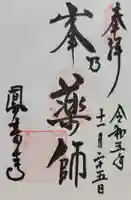 奉拝
令和五年
十一月二十五日
峯乃薬師
鳳来寺